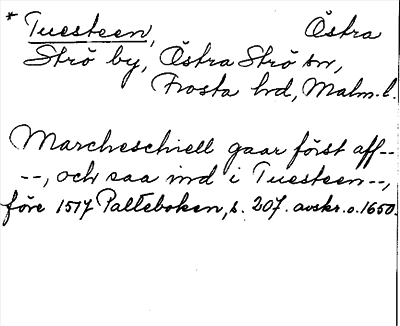 * Tuesteen, Östra
Strö by, Östra Strö sn,
Frosta hd, Malm. l.
Marcheschiell gaar först aff--
--, och saa ind i Tuesteen--,
före 1517 Palteboken, s. 207. avskr. o. 1650.